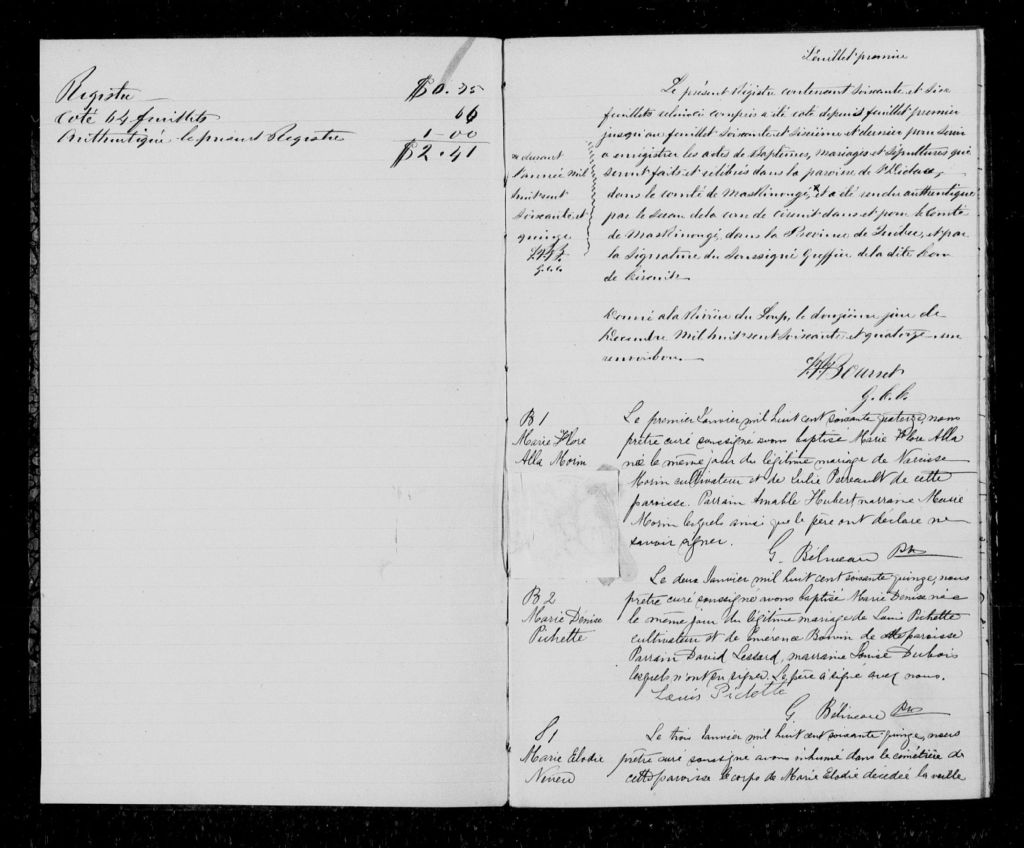 Registre $0.75
Coté 64 feuillets 66
Authentiqué le présent Registre 1-00
$2.41
Feuillet premier
Le présent Registre contenant soixante et six
feuillets celui-ci compris a été coté depuis feuillet premier
jusqu'au feuillet soixante et sixième et dernier pour servir
a enregistrer les actes de Baptêmes, mariages et sépultures qui
seront faits et célébrés dans la paroisse de St Didace,
dans le comté de Maskinongé,* et a été rendu authentique
par le sceau de la cour de circuit dans et pour le Comté
de Maskinongé, dans la Province de Québec, et par
la signature du Soussigné Greffier de la dite Cour
de Circuit.
* durant
l'année mil
huit cent
soixante et
quinze
G.C.C.
Donné a la Rivière du Loup, le douzième jour de
Decembre mil huit cent soixante et quatorze un
renvoi bon.
G.C.C.
B 1
Marie Flore
Alla Morin
Le premier Janvier mil huit cent soixante quinze, nous
prêtre curé soussigné avons baptisé Marie Flore Alla
née le même jour du légitime mariage de Narcisse
Morin cultivateur et de Julie Perreault de cette
paroisse. Parrain Amable Hubert, marraine Marie
Morin lesquels ainsi que le père ont déclaré ne
savoir signer.
G. Bélineau Ptre
B 2
Marie Denise
Pichette
Le deux Janvier mil huit cent soixante quinze, nous
prêtre curé soussigné avons baptisé Marie Denise née
le même jour du légitime mariage de Louis Pichette
cultivateur et de Emérence Boivin de cette paroisse
Parrain David Lessard, marraine Denise Dubois
lesquels n'ont pu signer. Le père a signé avec nous.
Louis Pichette
G. Bélineau Ptre
S 1
Marie Elodie
Neveu
Le trois Janvier mil huit cent soixante quinze, nous
prêtre curé soussigné avons inhumé dans le cimetière de
cette paroisse le corps de Marie Elodie décédée la veille